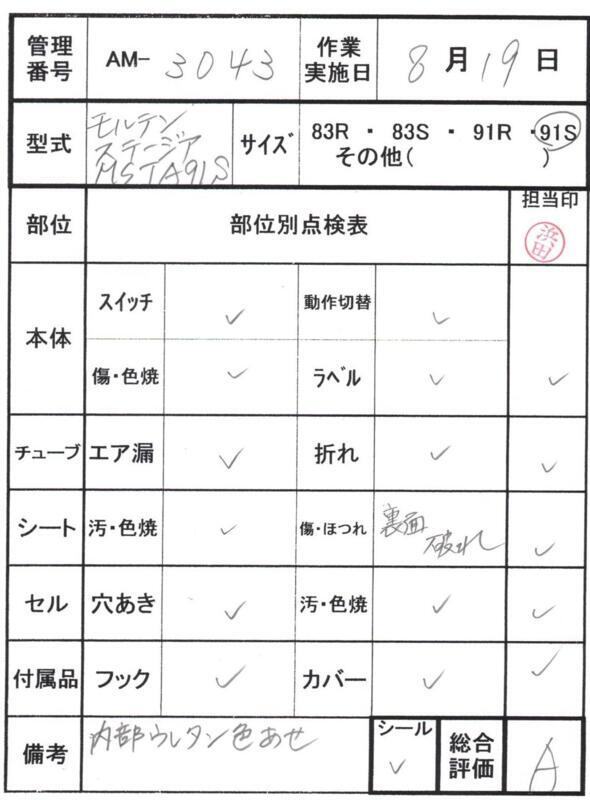 管理番号 AM- 3043 作業実施日 8月19日
型式 モルテン ステージア MSTA91S サイズ 83R ・ 83S ・ 91R ・ 91S
その他( )
部位 部位別点検表 担当印 浜田
本体 スイッチ ✓ 動作切替 ✓
傷・色焼 ✓ ラベル ✓ ✓
チューブ エア漏 ✓ 折れ ✓ ✓
シート 汚・色焼 ✓ 傷・ほつれ 裏面破れ ✓
セル 穴あき ✓ 汚・色焼 ✓ ✓
付属品 フック ✓ カバー ✓ ✓
備考 内部ウレタン色あせ シール ✓ 総合評価 A